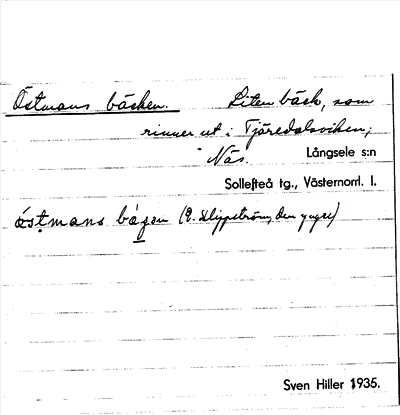 Östmans bäcken. Liten bäck, som
rinner ut i Tjäredalsviken,
Näs. Långsele s:n
Sollefteå tg., Västernorrl. l.
östmans (E. Klippström, den yngre)
Sven Hiller 1935.